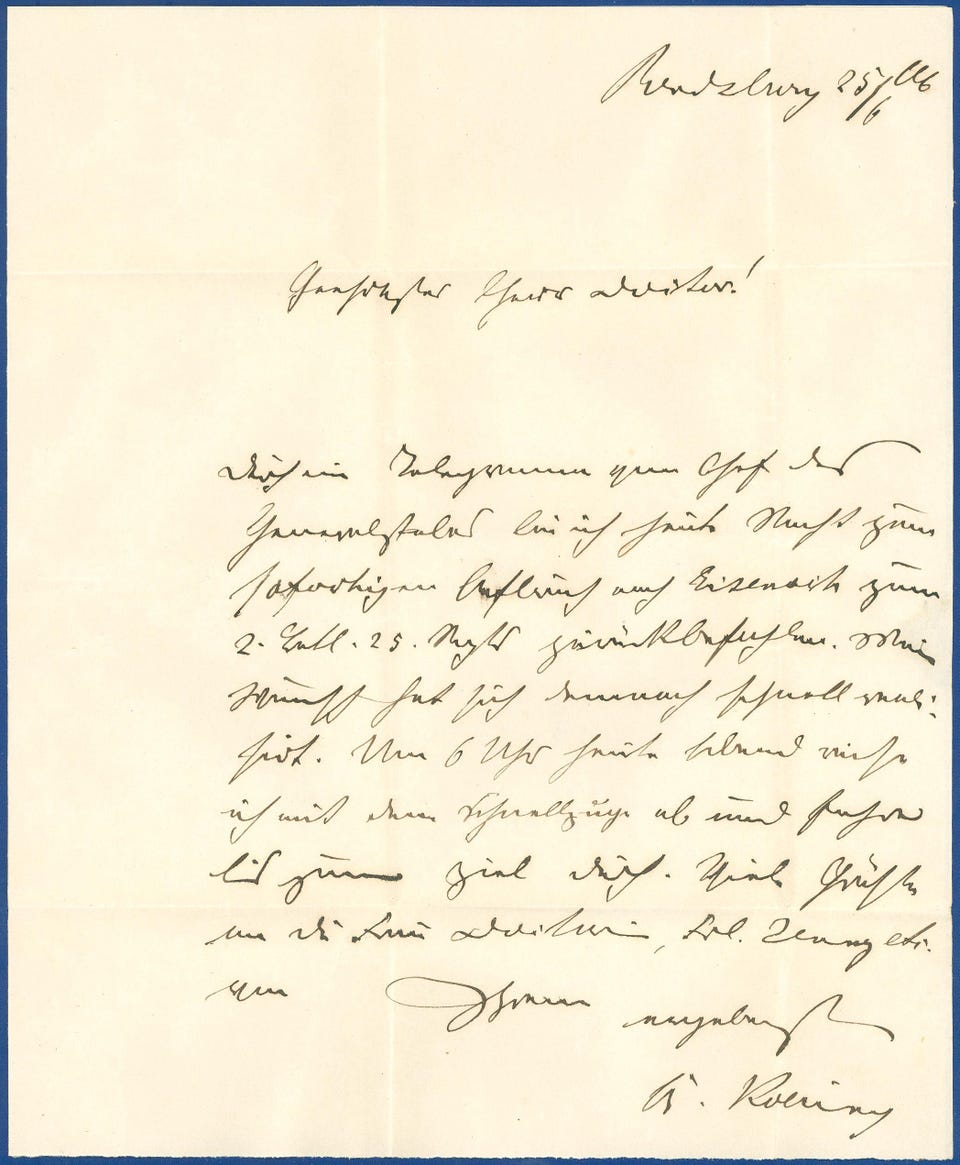 Rendsburg 25/6 66
Geehrtester Herr Doctor!
Durch ein Telegramm vom Chef des
Generalstabes bin ich heute Nacht zum
sofortigen Aufbruch nach Eisenach zum
2. Batl. 25. Regts zurückbefohlen. Mein
Wunsch hat sich demnach schnell reali-
sirt. Um 6 Uhr heute Abend reise
ich mit dem Schnellzuge ab und fahre
bis zum Ziel durch. Viele Grüße
an die Frau Doctorin, Frl. etc.
von Ihrem ergebenst